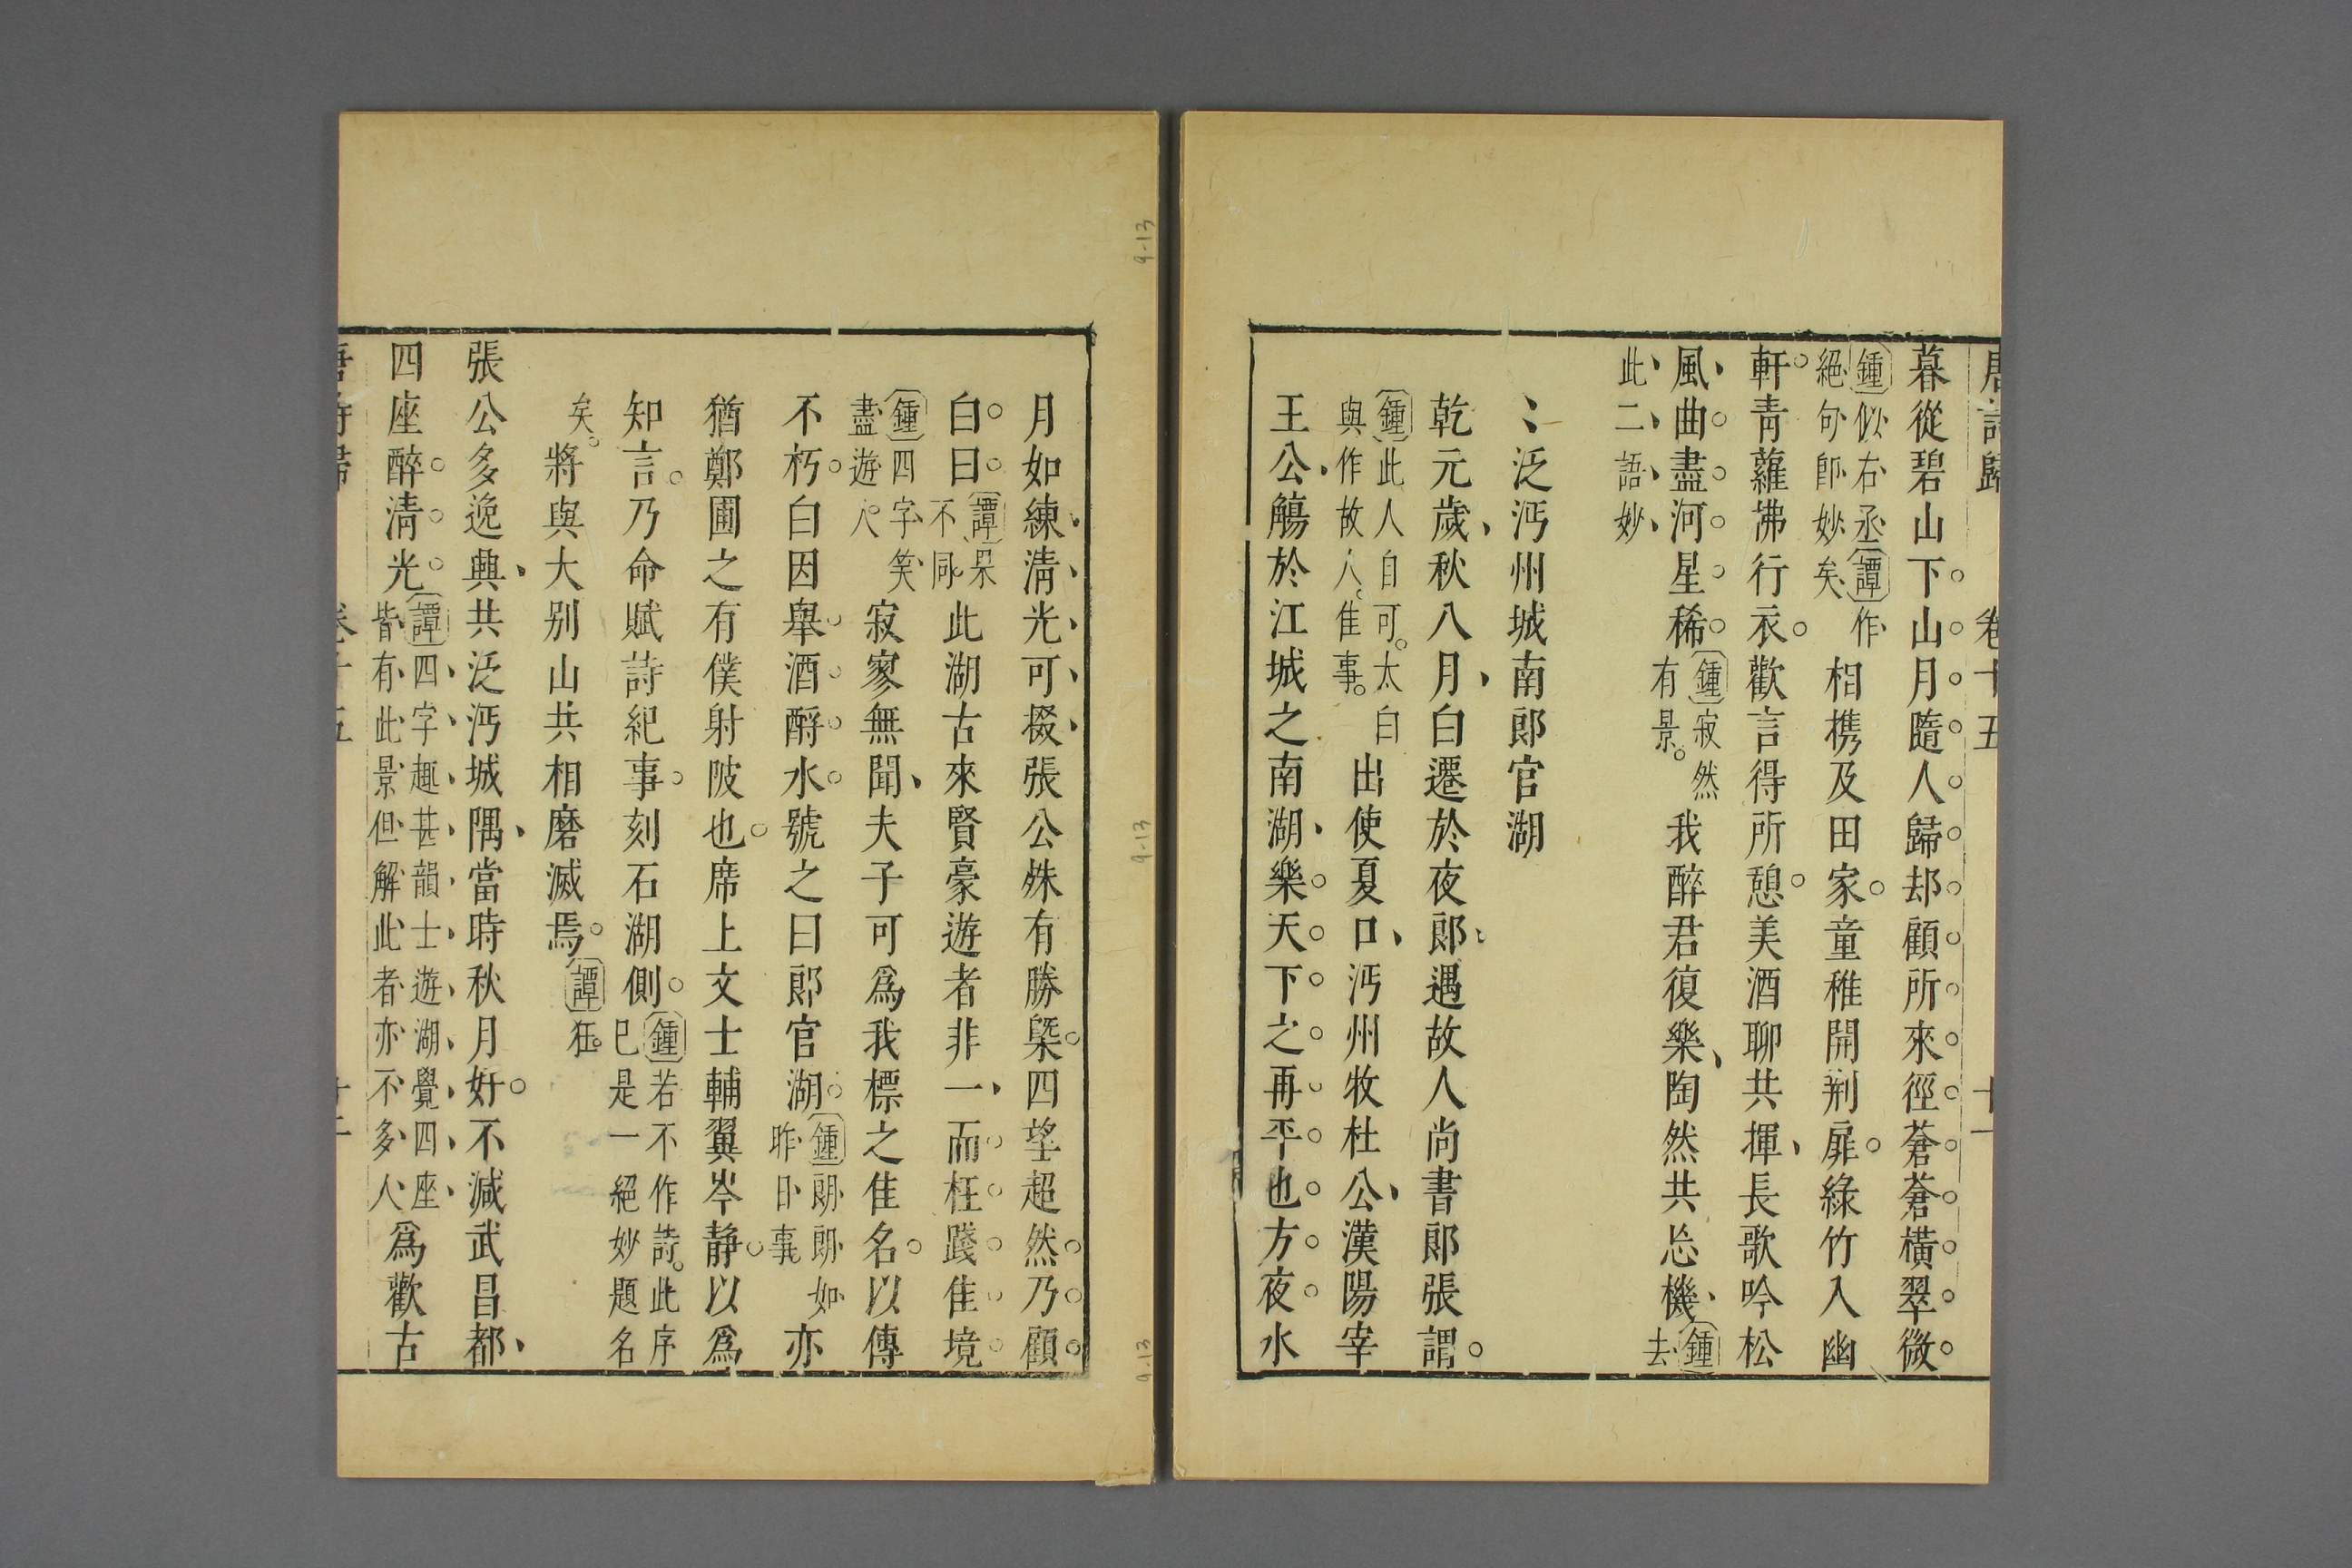 唐詩歸 卷十五 十一
暮從碧山下。山月隨人歸却顧所來徑蒼蒼橫翠微。
鍾似右丞譚作
絕句卽妙矣
相携及田家。童稚開荆扉。綠竹入幽
軒。青蘿拂行衣。歡言得所憩。美酒聊共揮、長歌吟松
風、曲盡河星稀。
鍾寂然
有景。
我醉君復樂、陶然共忘機、
鍾去
此二語妙
泛沔州城南郎官湖
乾元歲、秋八月、白遷於夜郎、遇故人尚書郎張謂。
鍾此人自可。太白
與作故人。佳事。
出使夏口、沔州牧杜公、漢陽宰
王公、觴於江城之南湖、樂天下之再平也。方夜。水
月如練、清光可掇、張公殊有勝槩。四望超然。乃顧。
白。曰。
譚呆
不同
此湖古來賢豪遊者非一、而枉踐佳境。
鍾四字笑
盡遊人。
寂寥無聞、夫子可爲我標之佳名。以傳
不朽。白因舉酒酹水。號之曰郎官湖。
鍾朗朗如
昨日事
亦
猶鄭圃之有僕射陂也。席上文士輔翼岑静。以爲
知言。乃命賦詩紀事。刻石湖側。
鍾若不作詩。此序
已是一絕妙題名
矣。
將與大别山共相磨滅焉。
譚狂。
張公多逸興、共泛沔城隅、當時秋月好。不減武昌都、
四座醉。清。光。
譚四字趣甚韻士遊湖覺四座
皆有此景但解此者亦不多人
爲歡古
唐詩歸 卷十五 十二
9-13
9-13
9-13